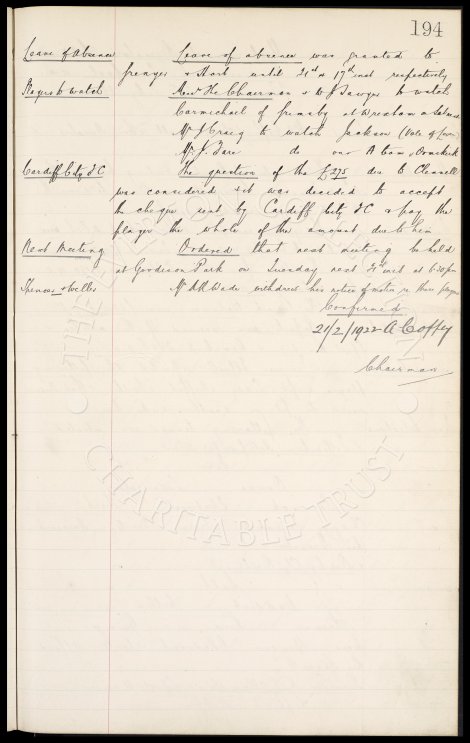 194
Leave of Absence Leave of absence was granted to
& Short until 21st & 17th inst respectively
Players to watch Messrs The Chairman & W J Sawyer to watch
Carmichael of Grimsby at Wrexham
Mr J Craig to watch Jackson (Vale of Leven)
Mr J. Fare do
Cardiff City FC The question of the £275 due to Clennell
was considered & it was decided to accept
the cheque sent by Cardiff City FC & pay the
player the whole of the amount due to him
Next Meeting Ordered that next meeting be held
at Goodison Park on Tuesday next inst at 6.30pm
Spencer & Wells Mr A R Wade withdrew his notice of motion re these players
Confirmed
21/2/1922 A Coffy
Chairman
THE EVERTON
CHARITABLE TRUST